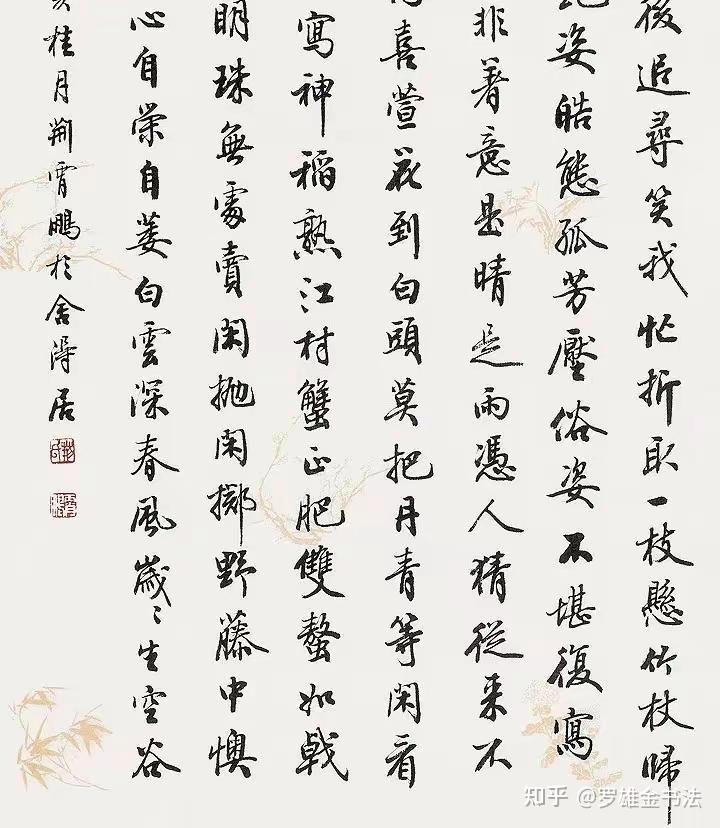 後追尋笑我忙折取一枝懸竹杖歸
姿皓態孤芳壓俗姿不堪復寫
非著意是晴是雨憑人猜從來不
喜萱花到白頭莫把丹青等閑看
寫神稻熟江村蟹正肥雙螯如戟
明珠無處賣閑拋閑擲野藤中懊
心自榮自萎白雲深春風歲〻生空谷
桂月荊霄鵬於舍得居
知乎 @罗雄金书法